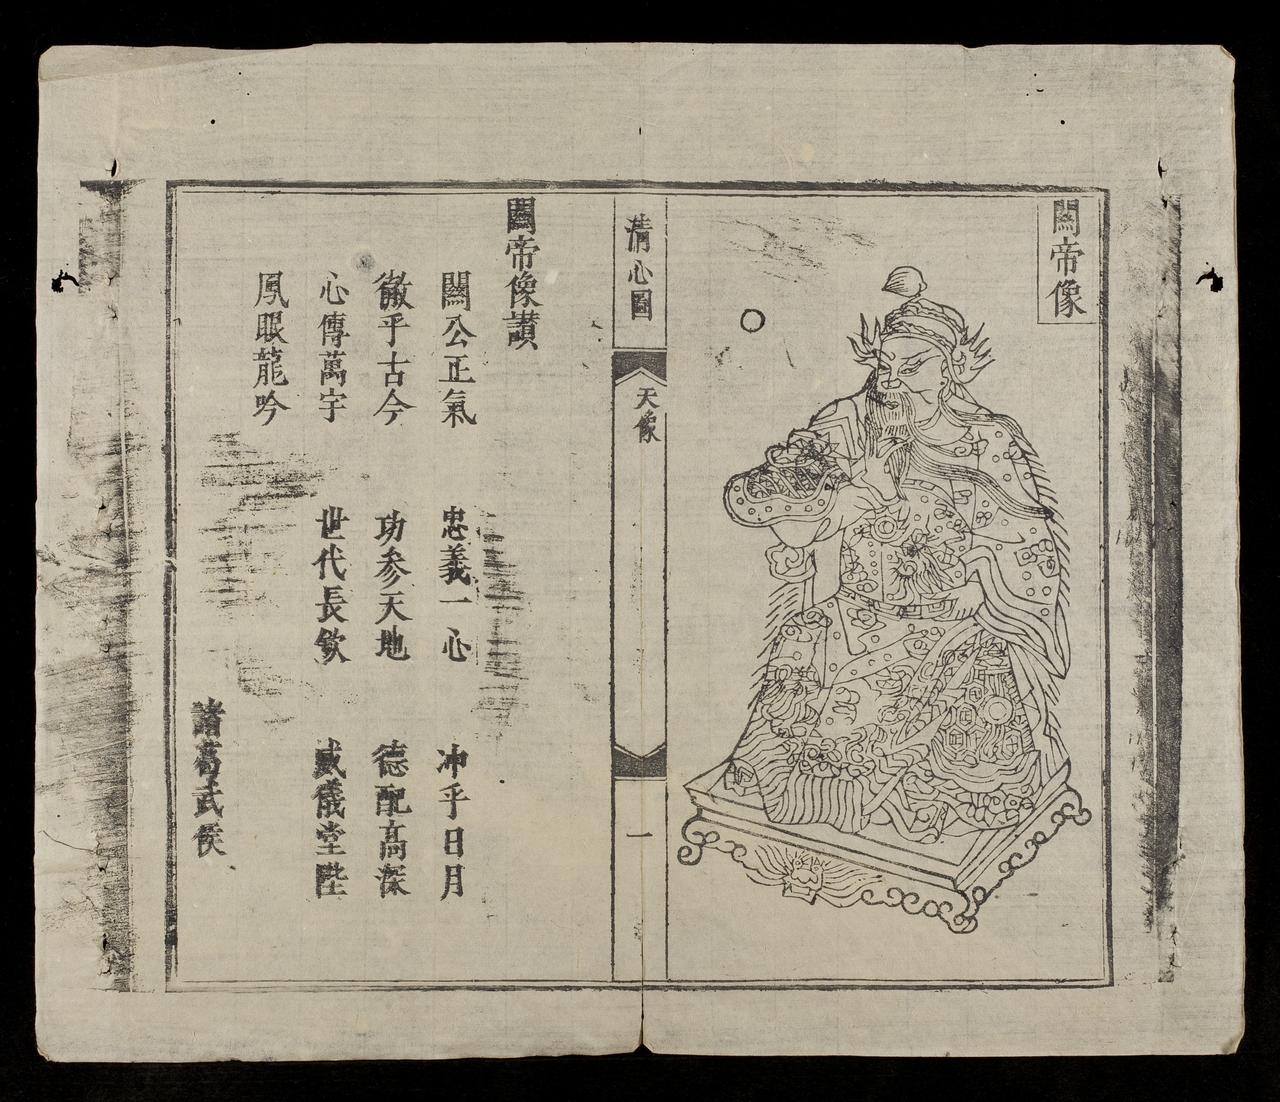 關帝像
清心圖
天像
一
關帝像讃
關公正氣 忠義一心 冲乎日月
徹乎古今 功参天地 德配高深
心傳萬宇 世代長欽 威儀堂陛
鳳眼龍吟
諸葛武侯